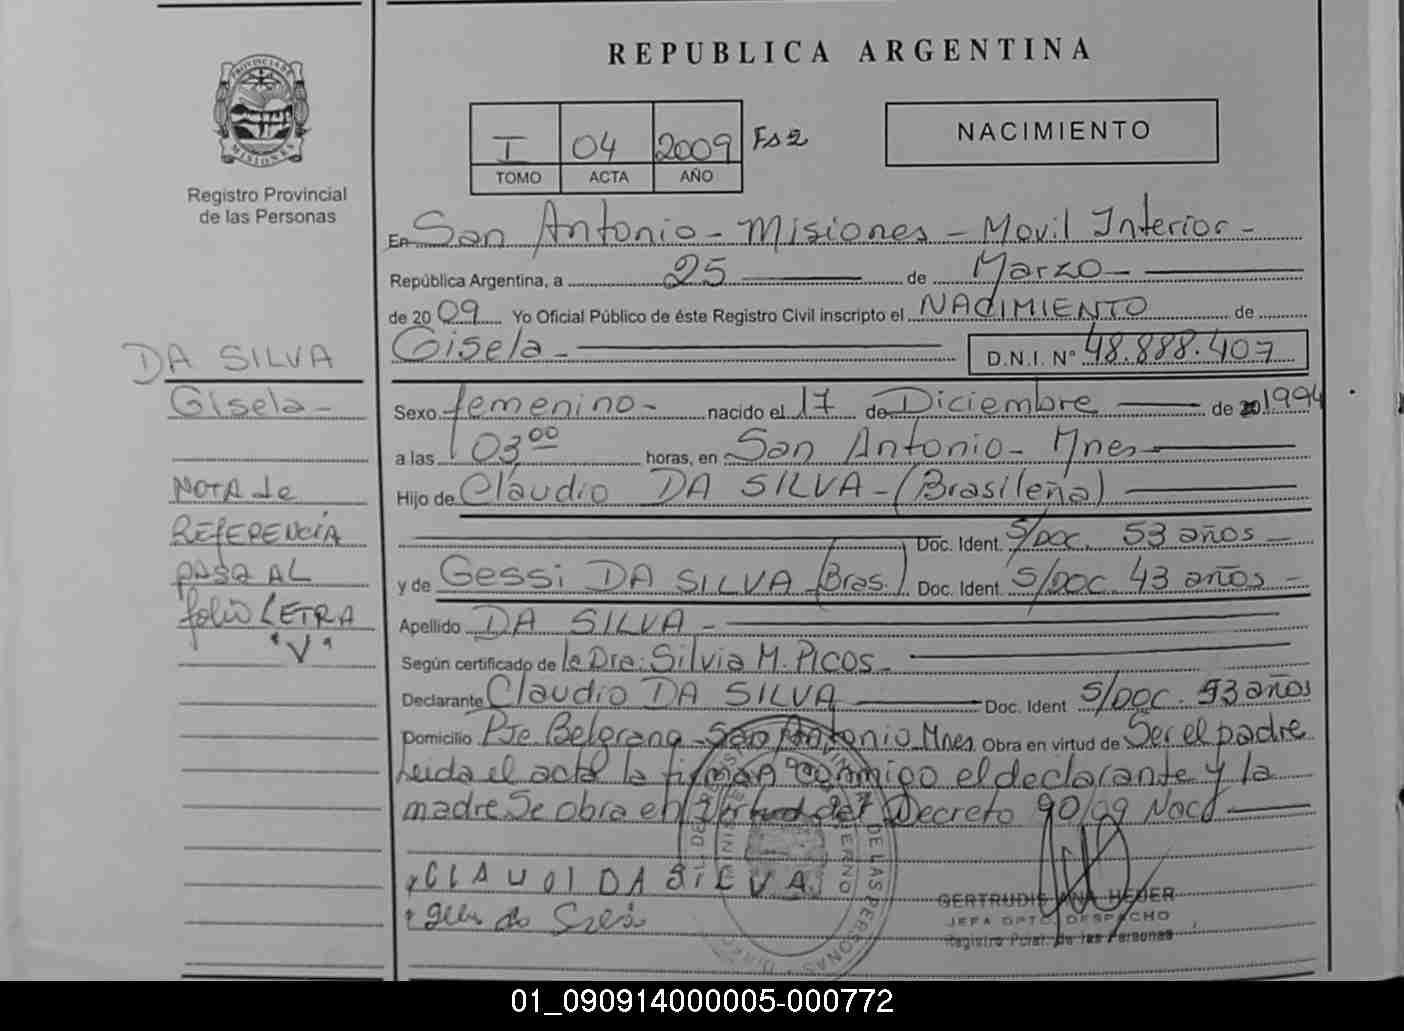 REPUBLICA ARGENTINA
PROVINCIA DE
MISIONES
Registro Provincial
de las Personas
I 04 2009 Fs 2
TOMO ACTA AÑO
NACIMIENTO
En San Antonio - Misiones - Movil Interior -
República Argentina, a 25 de Marzo
de 2009 Yo Oficial Público de éste Registro Civil inscripto el NACIMIENTO de
Gisela - D.N.I. Nº 48.888.407
DA SILVA
Gisela -
Sexo femenino - nacido el 17 de Diciembre de 1994
a las 03,00 horas, en San Antonio - Mnes
Hijo de Claudio DA SILVA - (Brasileña)
Doc. Ident. S/DOC. 53 años -
y de Gessi DA SILVA (Bras.) Doc. Ident. S/DOC 43 años -
Apellido DA SILVA -
Según certificado de la Dra: Silvia M. PICOS -
Declarante Claudio DA SILVA Doc. Ident S/DOC. 53 años
Domicilio Pje Belgrano San Antonio Mnes. Obra en virtud de Ser el padre
Leida el acta la firman conmigo el declarante y la
madre Se obra en virtud del Decreto 90/09 Nac
NOTA de
REFERENCIA
PASA AL
folio LETRA
"V"
CLAUDI DA SILVA
GERTRUDIS ANA HEDER
JEFA DPTO DESPACHO
Registro Pcial. de las Personas
DE LAS PERSONAS
01_090914000005-000772